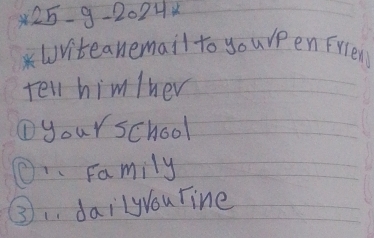 *25-9-2024*
*Write an email to your Pen Friend
Tell him/her
① your school
② '' Family
③ '' daily routine